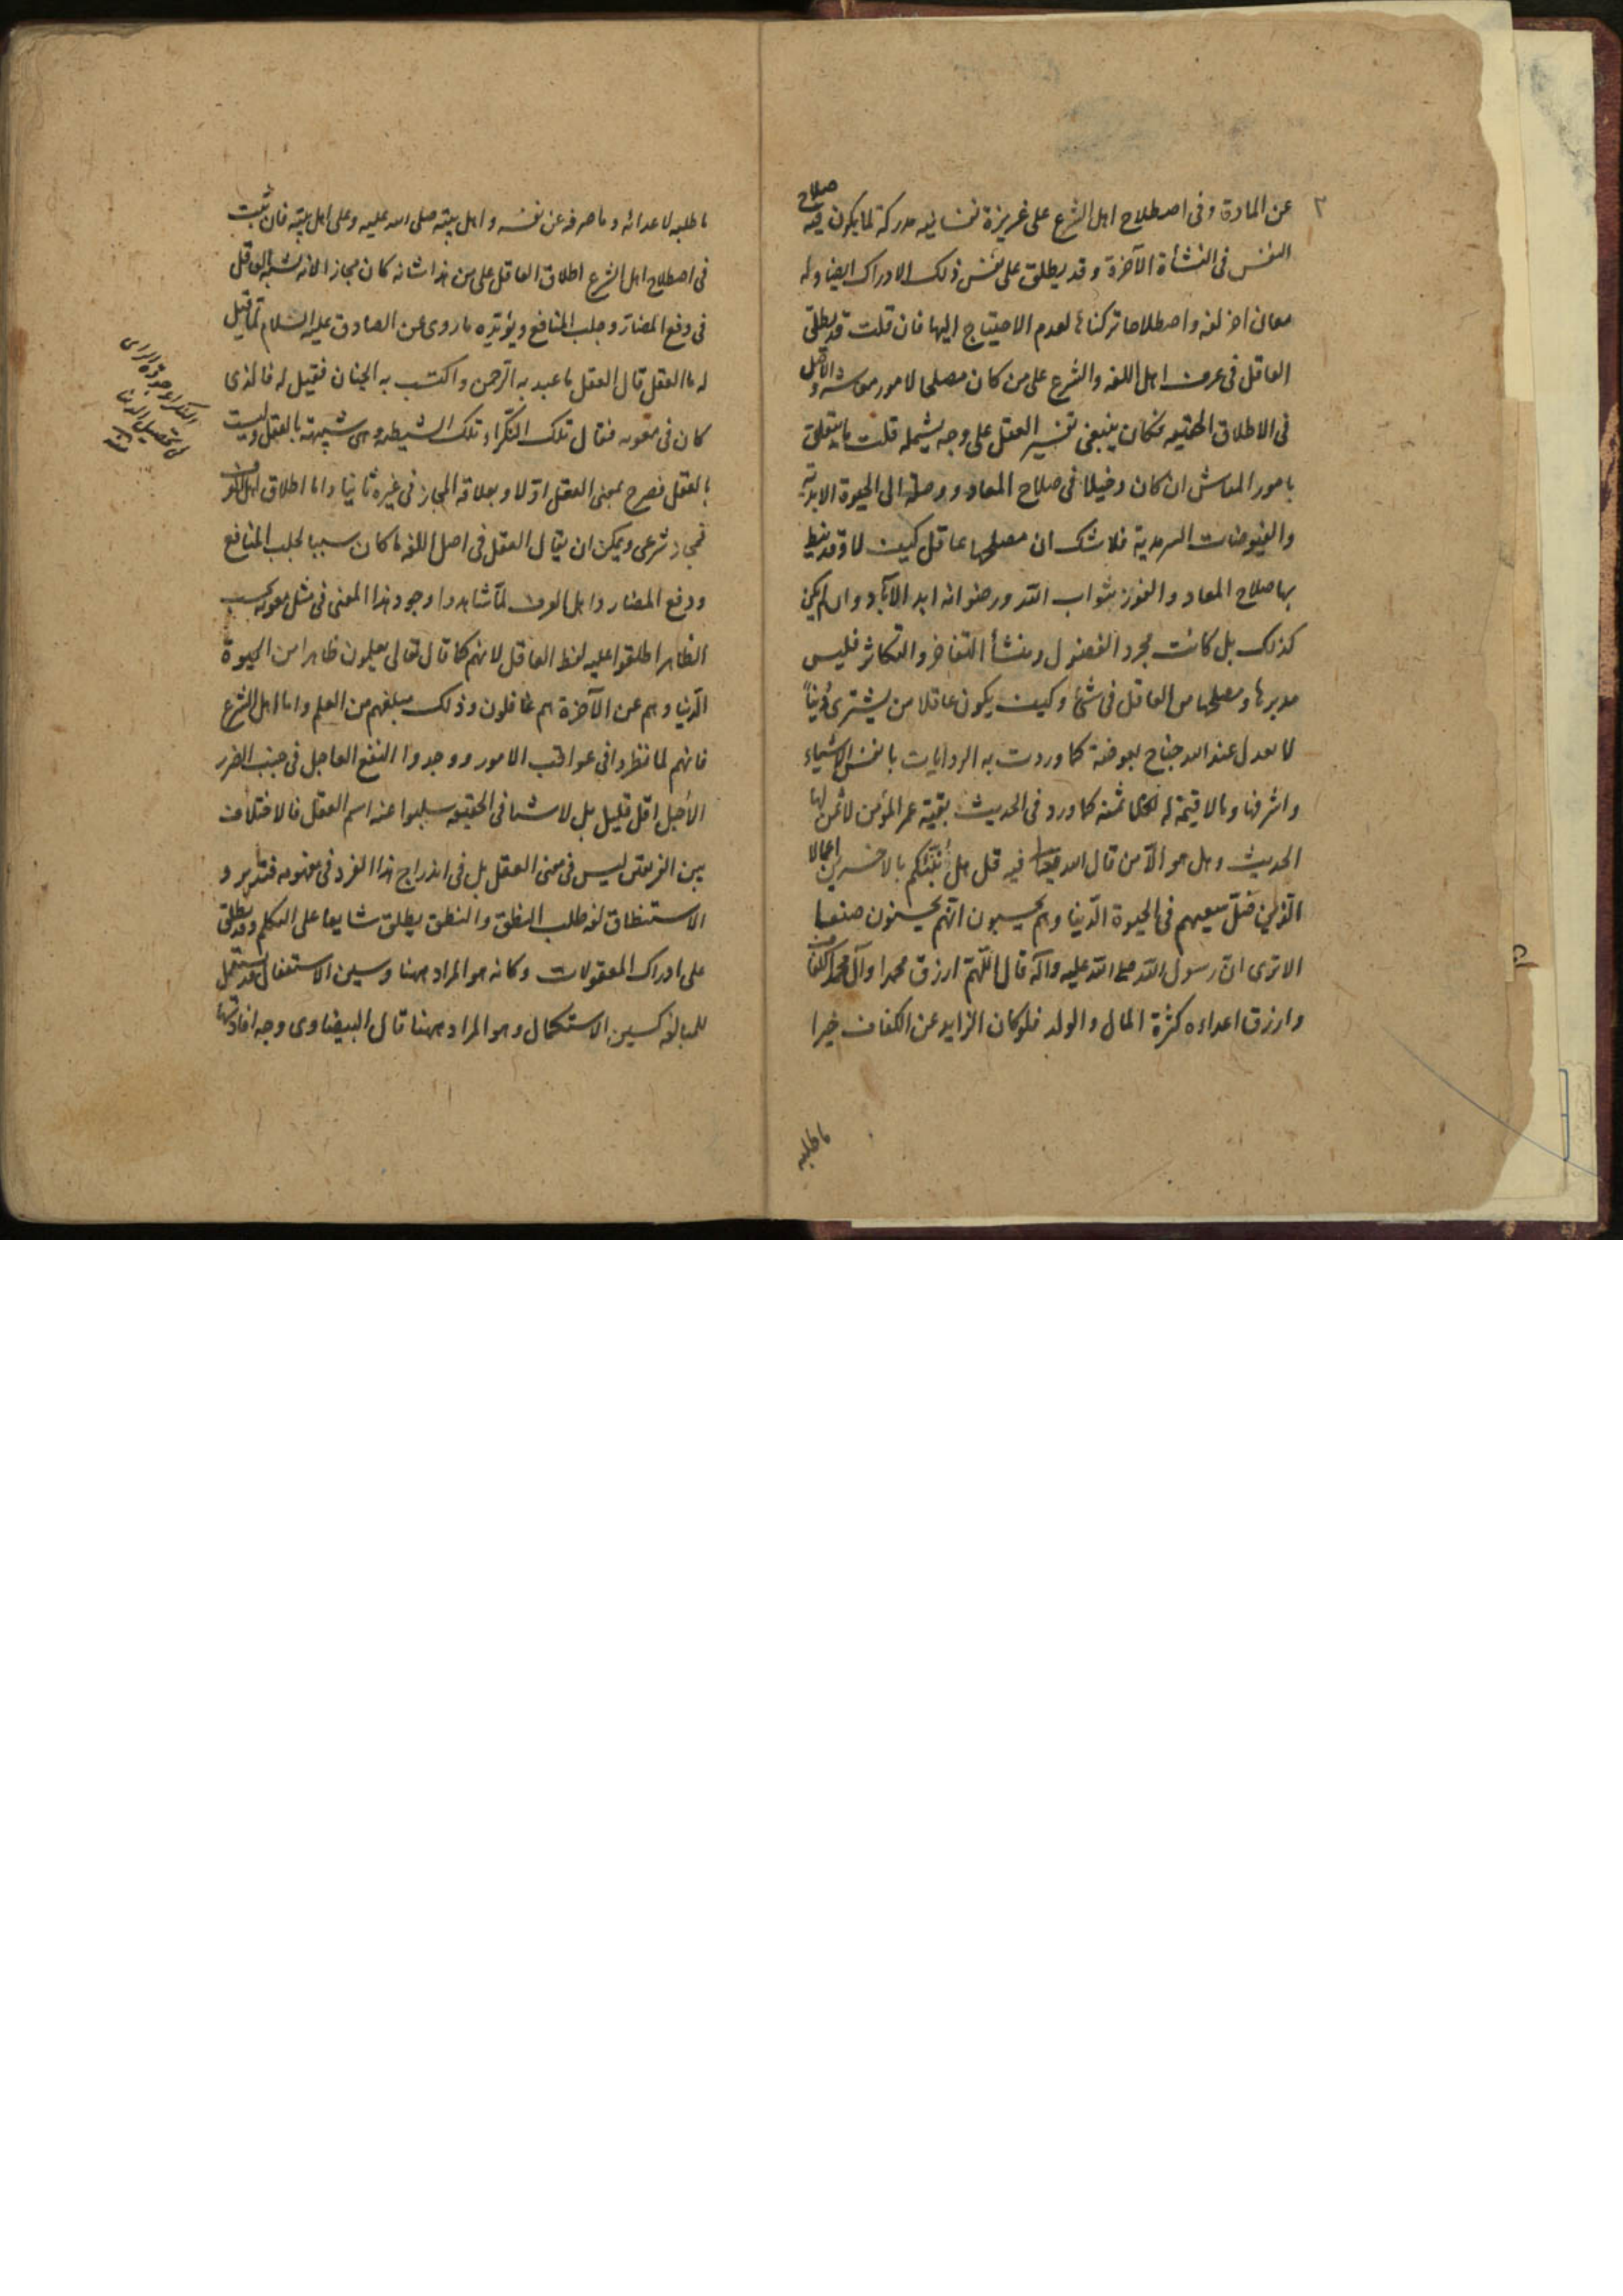 ٢
عن المادة وفى اصطلاح اهل الشرع على غريزة نفسانيه مدركة لما يكون فيه صلاح
النفس فى النشأة الآخرة وقد يطلق على نفس ذلك الادراك ايضا وله
معان اخر لغه واصطلاحا تركناها لعدم الاحتياج اليها فان قلت قد يطلق
العاقل فى عرف اهل اللغه والشرع على من كان مصلحا لامور معاشه والاصل
فى الاطلاق الحقيقه فكان ينبغى تفسير العقل على وجه يشمله قلت ما يتعلق
بامور المعاش ان كان دخيلا فى صلاح المعاد و وصلة الى الحيوة الابدية
والفيوضات السرمدية فلا شك ان مصلحها عاقل كيف لا وقد نيط
بها صلاح المعاد والفوز بثواب الله ورضوانه ابد الآباد وان لم يكن
كذلك بل كانت مجرد الفضول ومنشأ التفاخر والتكاثر فليس
مدبرها ومصلحها من العاقل فى شئ وكيف يكون عاقلا من يشترى دنيا
لا تعدل عند الله جناح بعوضة كما وردت به الروايات بانفس الاشياء
واشرفها وما لا قيمة له ثمنه كما ورد فى الحديث بقية عمر المؤمن لا ثمن لها
الحديث وهل هو الا من قال الله فيه قل هل ننبئكم بالاخسرين اعمالا
الذين ضل سعيهم فى الحيوة الدنيا وهم يحسبون انهم يحسنون صنعا
الا ترى ان رسول الله صلى الله عليه وآله قال اللهم ارزق محمدا وآل محمد الكفاف
وارزق اعداءه كثرة المال والولد فلو كان الزايد عن الكفاف خيرا
ما طلبه
ما طلبه لاعدائه وما صرفه عن نفسه واهل بيته صلى الله عليه وعلى اهل بيته فان ثبت
فى اصطلاح اهل الشرع اطلاق العاقل على من هذا شانه كان مجازا لانه يشبه العاقل
فى دفع المضار وجلب المنافع ويؤيده ما روى عن الصادق عليه السلام لما قيل
له ما العقل قال العقل ما عبد به الرحمن واكتسب به الجنان فقيل له فالذى
كان فى معويه فقال تلك النكراء تلك الشيطنه وهى شبيهة بالعقل وليست
بالعقل فصرح بمعنى العقل اولا وبعلاقه المجاز فى غيره ثانيا واما اطلاق اهل العرف
فمجاز شرعى ويمكن ان يقال العقل فى اصل اللغه ما كان سببا لجلب المنافع
ودفع المضار واهل العرف لما شاهدوا وجود هذا المعنى فى مثل معويه بحسب
الظاهر اطلقوا عليه لفظ العاقل لانهم كما قال تعالى يعلمون ظاهرا من الحيوة
الدنيا وهم عن الآخرة هم غافلون وذلك مبلغهم من العلم واما اهل الشرع
فانهم لما نظروا فى عواقب الامور ووجدوا النفع العاجل فى جنب الضرر
الآجل اقل قليل بل لا شيئا فى الحقيقه سلبوا عنه اسم العقل فالاختلاف
بين الفريقين ليس فى معنى العقل بل فى اندراج هذا الفرد فى مفهومه فتدبر و
الاستنطاق لغه طلب النطق والنطق يطلق شايعا على التكلم وقد يطلق
على ادراك المعقولات وكانه هو المراد ههنا وسين الاستفعال قد يستعمل
للمبالغه كسين الاستكمال وهو المراد ههنا قال البيضاوى وجه افادتها
النكراء جودة الراى
فى تحصيل الدنيا